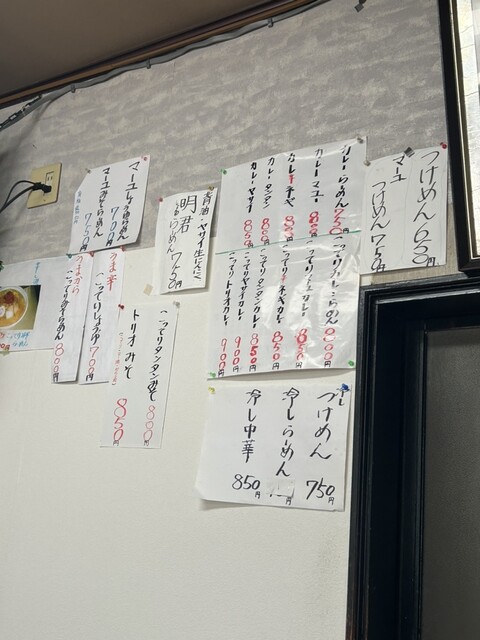 つけめん 650円
マーユ
つけめん 750円
カレーらーめん 750円
カレーマユー
カレー
カレータンタン 800円
カレーヤサイ 800円
850円
850円
こってりタンタンカレー 850円
こってりヤサイカレー 900円
こってりトリオカレー 900円
冷し
つけめん 750円
冷しらーめん
冷し中華 850円
醤油 ヤサイ 生にんにく
明君
らーめん 750円
マーユしょうゆらーめん 700円
マーユみそらーめん 750円
うま辛
こってりしょうゆ 700円
うまから
こってりみそらーめん 800円
こってりタンタンみそ 800円
トリオみそ 850円